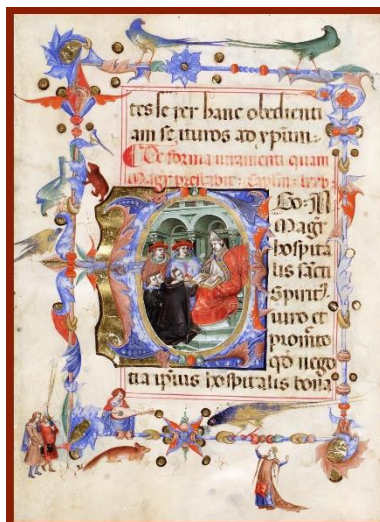 tes se per hanc obedienti
am se ituros ad xpum:
De forma iuramenti quam
Magr prestabit:
Ego N
Magr
hospita
lis sacti
Spirit
iuro et
promito
qd nego
tia ipius hospitalis bona